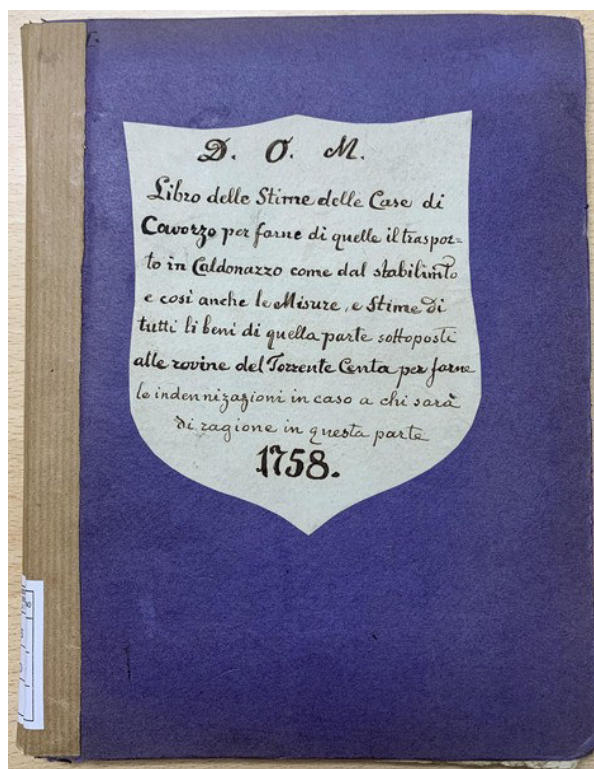 D. O. M.
Libro delle Stime delle Case di
Cavorzo per farne di quelle il traspor=
to in Caldonazzo come dal stabilimto
e così anche le Misure, e Stime di
tutti li beni di quella parte sottoposti
alle rovine del Torrente Centa per farne
le indennizazioni in caso a chi sarà
di ragione in questa parte
1758.